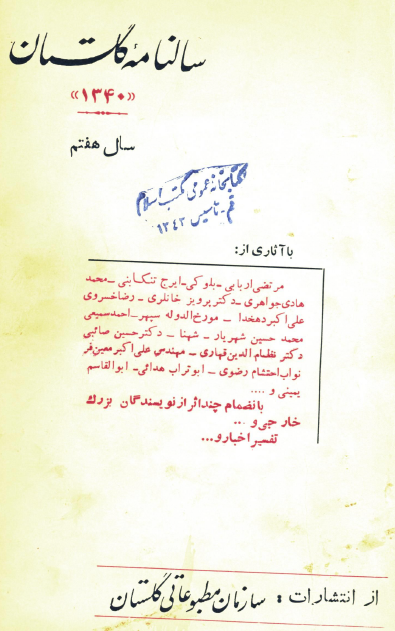 سالنامهٔ گلستان
«۱۳۴۰»
سال هفتم
کتابخانه عمومی مکتب اسلام
قم - تاسیس ۱۳۴۳
با آثاری از:
مرتضی اربابی - بلوکی - ایرج تنکابنی - محمد
هادی جواهری - دکتر پرویز خانلری - رضا خسروی
علی اکبر دهخدا - مورخ الدوله سپهر - احمد سمیعی
محمد حسین شهریار - شهنا - دکتر حسین صائبی
دکتر نظام الدین قهاری - مهندس علی اکبر معین فر
نواب احتشام رضوی - ابوتراب هدائی - ابوالقاسم
یمینی و ....
با نضمام چند اثر از نویسندگان بزرگ
خارجی و ...
تفسیر اخبار و ...
از انتشارات : سازمان مطبوعاتی گلستان